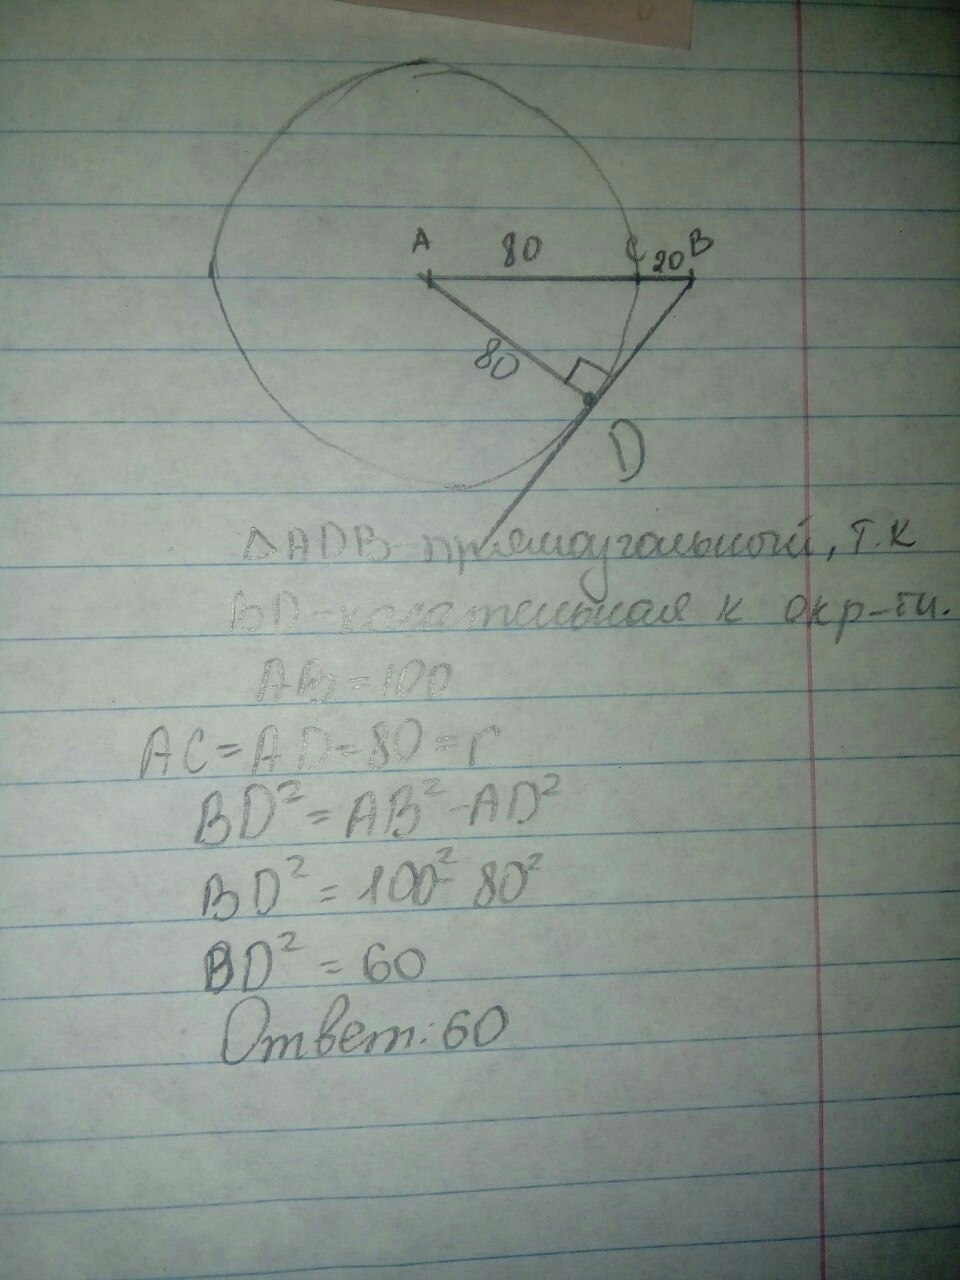 A 80 C 20 B
80
D
△ADB-прямоугольный, т.к
BD-касательная к окр-ти.
AB=100
AC=AD=80=r
BD²=AB²-AD²
BD²=100²-80²
BD²=60
Ответ:60